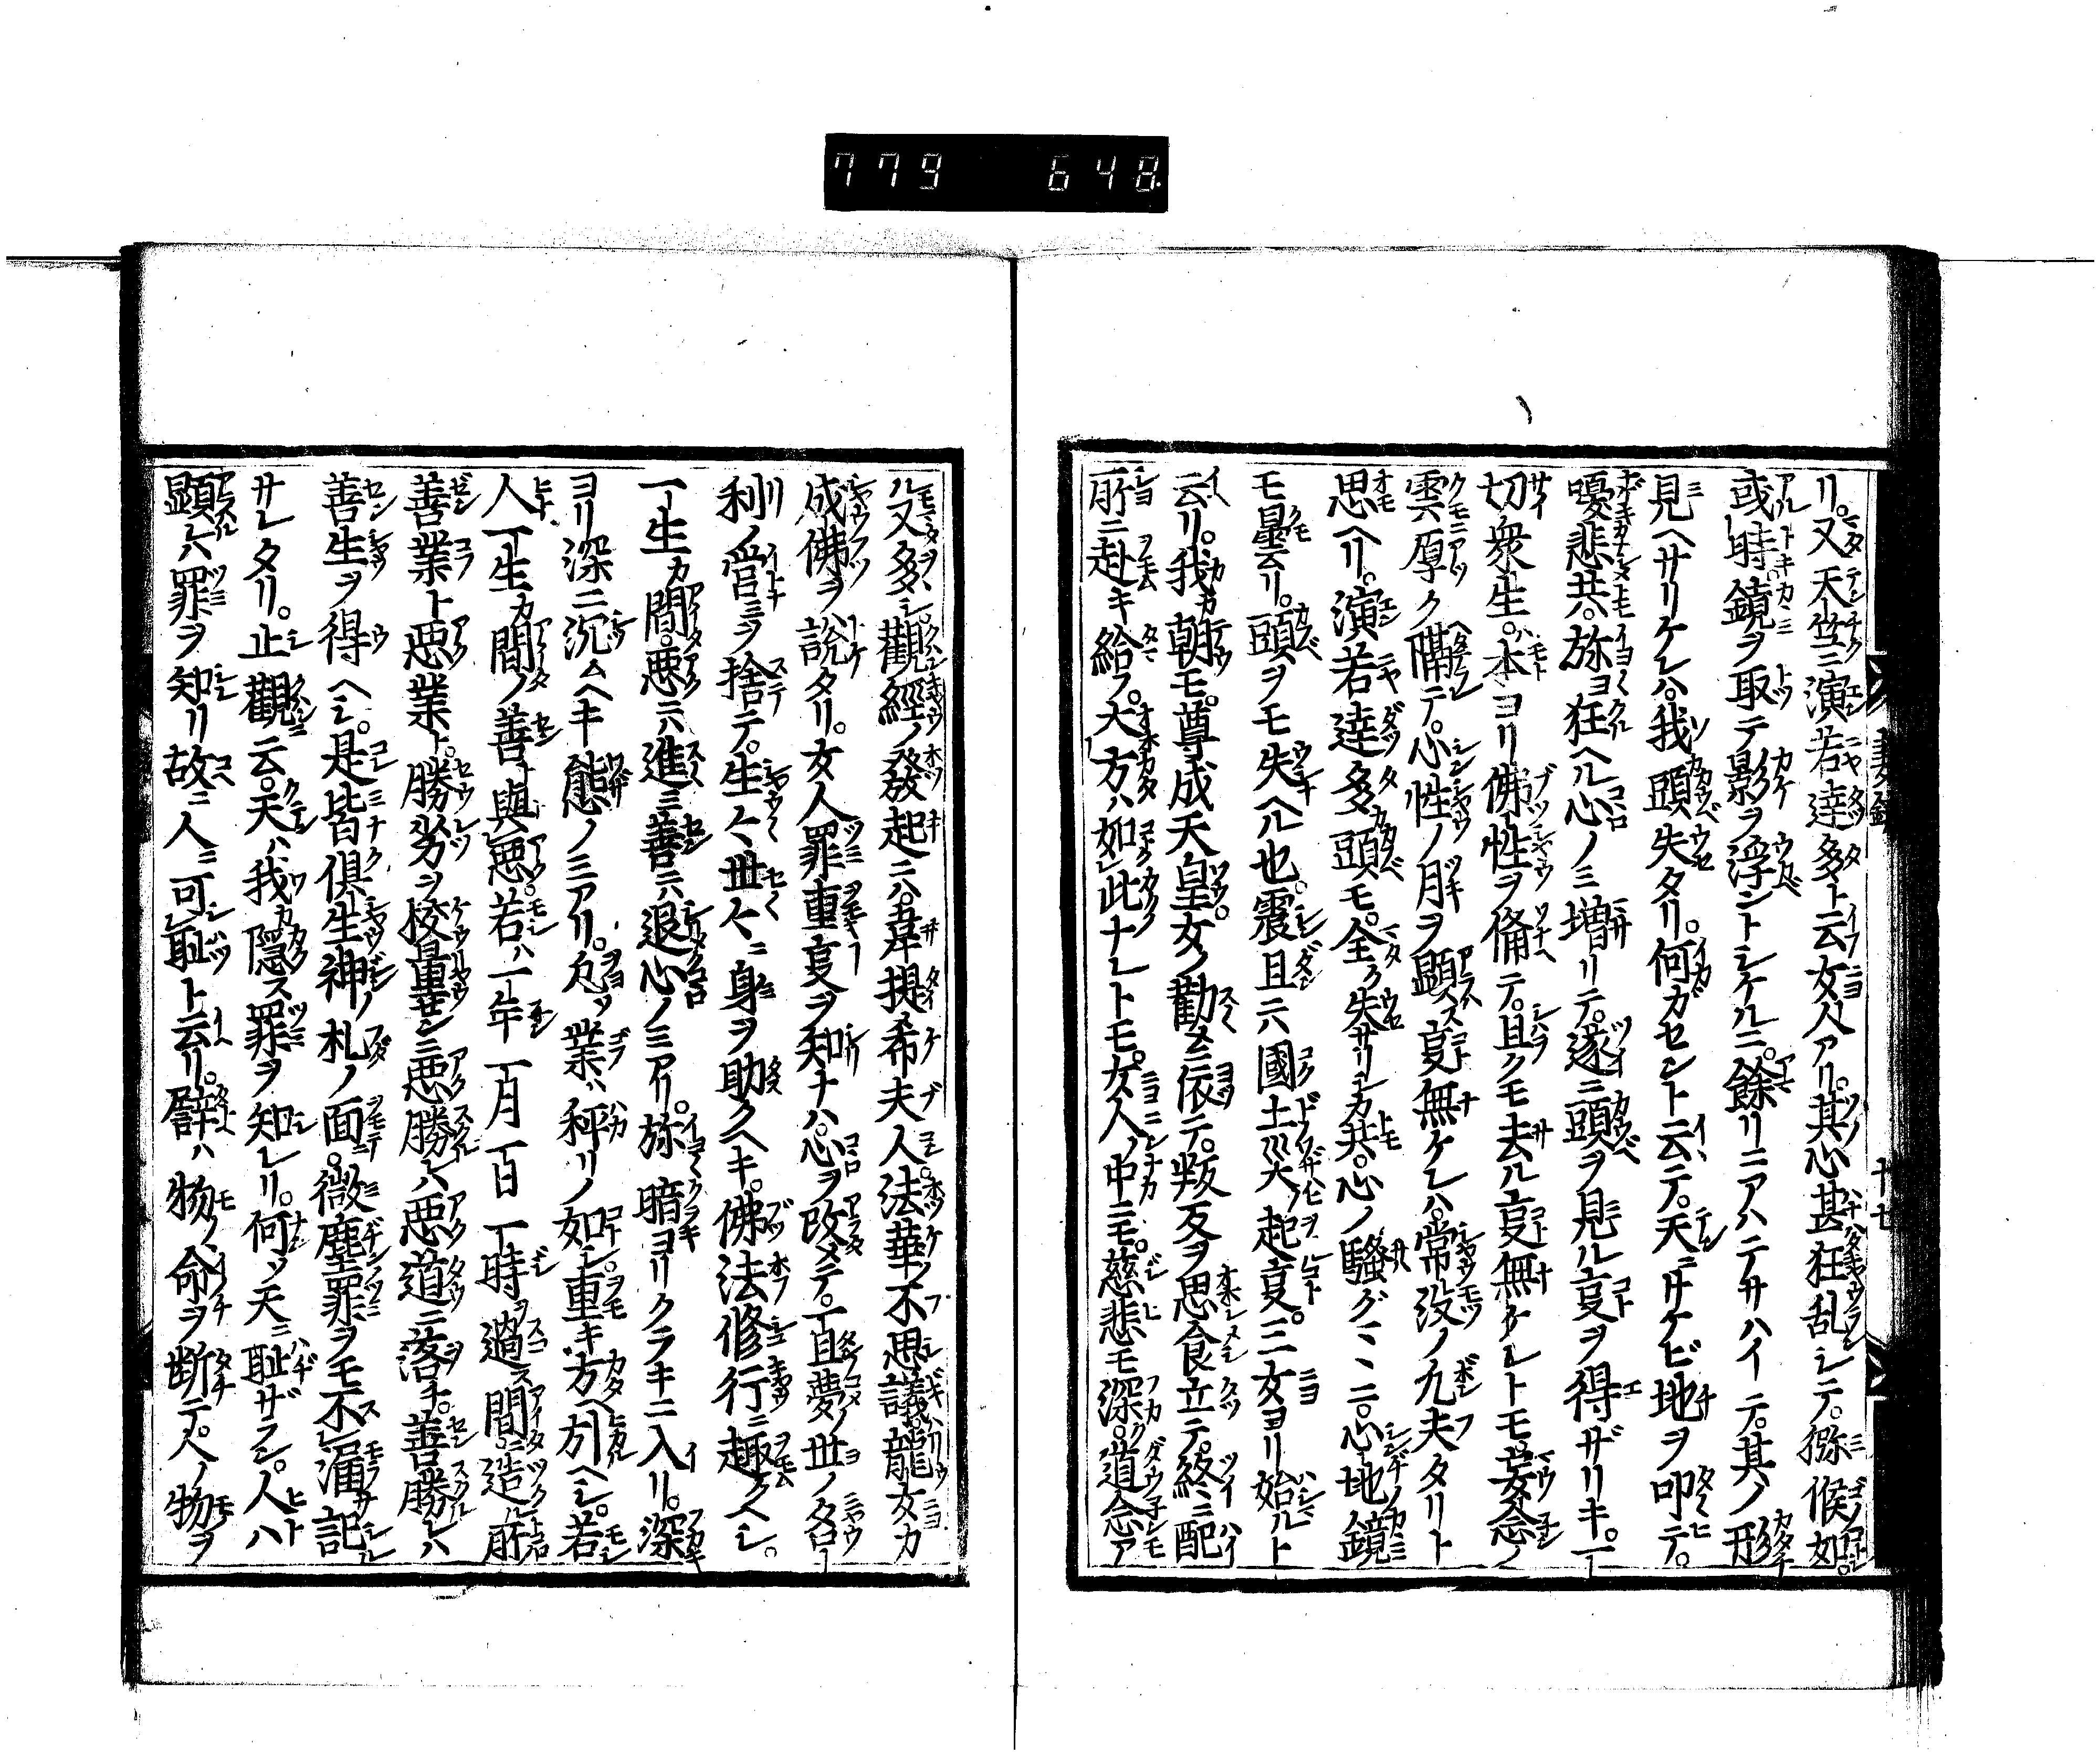 779 648
リ。又天竺ニ演若達多ト云女人アリ。其心甚狂乱シテ。獼猴如。
或時鏡ヲ取テ影ヲ浮ントシケルニ。餘リニアハテサハイテ。其ノ形
見ヘサリケレハ。我頭失タリ。何ガセント云テ。天ニサケビ地ヲ叩テ。
嘆悲共。弥ヨ狂ヘル心ノミ増リテ。遂ニ頭ヲ見ル㕝ヲ得ザリキ。一
切衆生。本ヨリ佛性ヲ備テ。且クモ去ル㕝無ケレトモ。妄念ノ
雲厚ク隔テ。心性ノ月ヲ顕ス㕝無ケレハ。常没ノ九夫タリト
思ヘリ。演若達多頭モ。全ク失サリシカ共。心ノ騒グマヽニ。心地鏡
モ曇リ。頭ヲモ失ヘル也。震旦ニハ國土災起㕝。三女ヨリ始ルト
云リ。我カ朝モ。尊成天皇。女ノ勸メニ依テ。叛反ヲ思食立テ。終ニ配
所ニ赴キ給フ。大方ハ如此ナレトモ。女人ノ中ニモ。慈悲モ深。道念ア
ル又多シ。觀經ノ發起ニハ。韋提希夫人。法華ノ不思議。龍女カ
成佛ヲ説タリ。女人罪重㕝ヲ知ナハ。心ヲ改メテ。一旦夢ノ世ノ名
利ノ營ミヲ捨テ。生々世々ニ身ヲ助クヘキ。佛法修行ニ趣クヘシ。
一生カ間。悪ニハ進ミ善ニハ退心ノミアリ。弥暗ヨリクラキニ入リ。深
ヨリ深ニ沉ムヘキ態ノミアリ。凢ソ業ハ秤リノ如シ。重キ方ヘ引ヘシ。若
人一生カ間ノ善與悪。若ハ一年一月一日一時ヲ過ス間。造ル所
善業ト悪業ト。勝劣ヲ挍量センニ。悪勝レハ悪道ニ落チ。善勝レハ
善生ヲ得ヘシ。是皆倶生神ノ札ノ面。微塵罪ヲモ不漏記
サレタリ。止觀云。天ハ我カ隠ス罪ヲ知レリ。何ソ天ニ耻ザラン。人ハ
顕レハ罪ヲ知リ故ニ人ニ可耻ト云リ。譬ハ物ノ命ヲ断テ。人ノ物ヲ